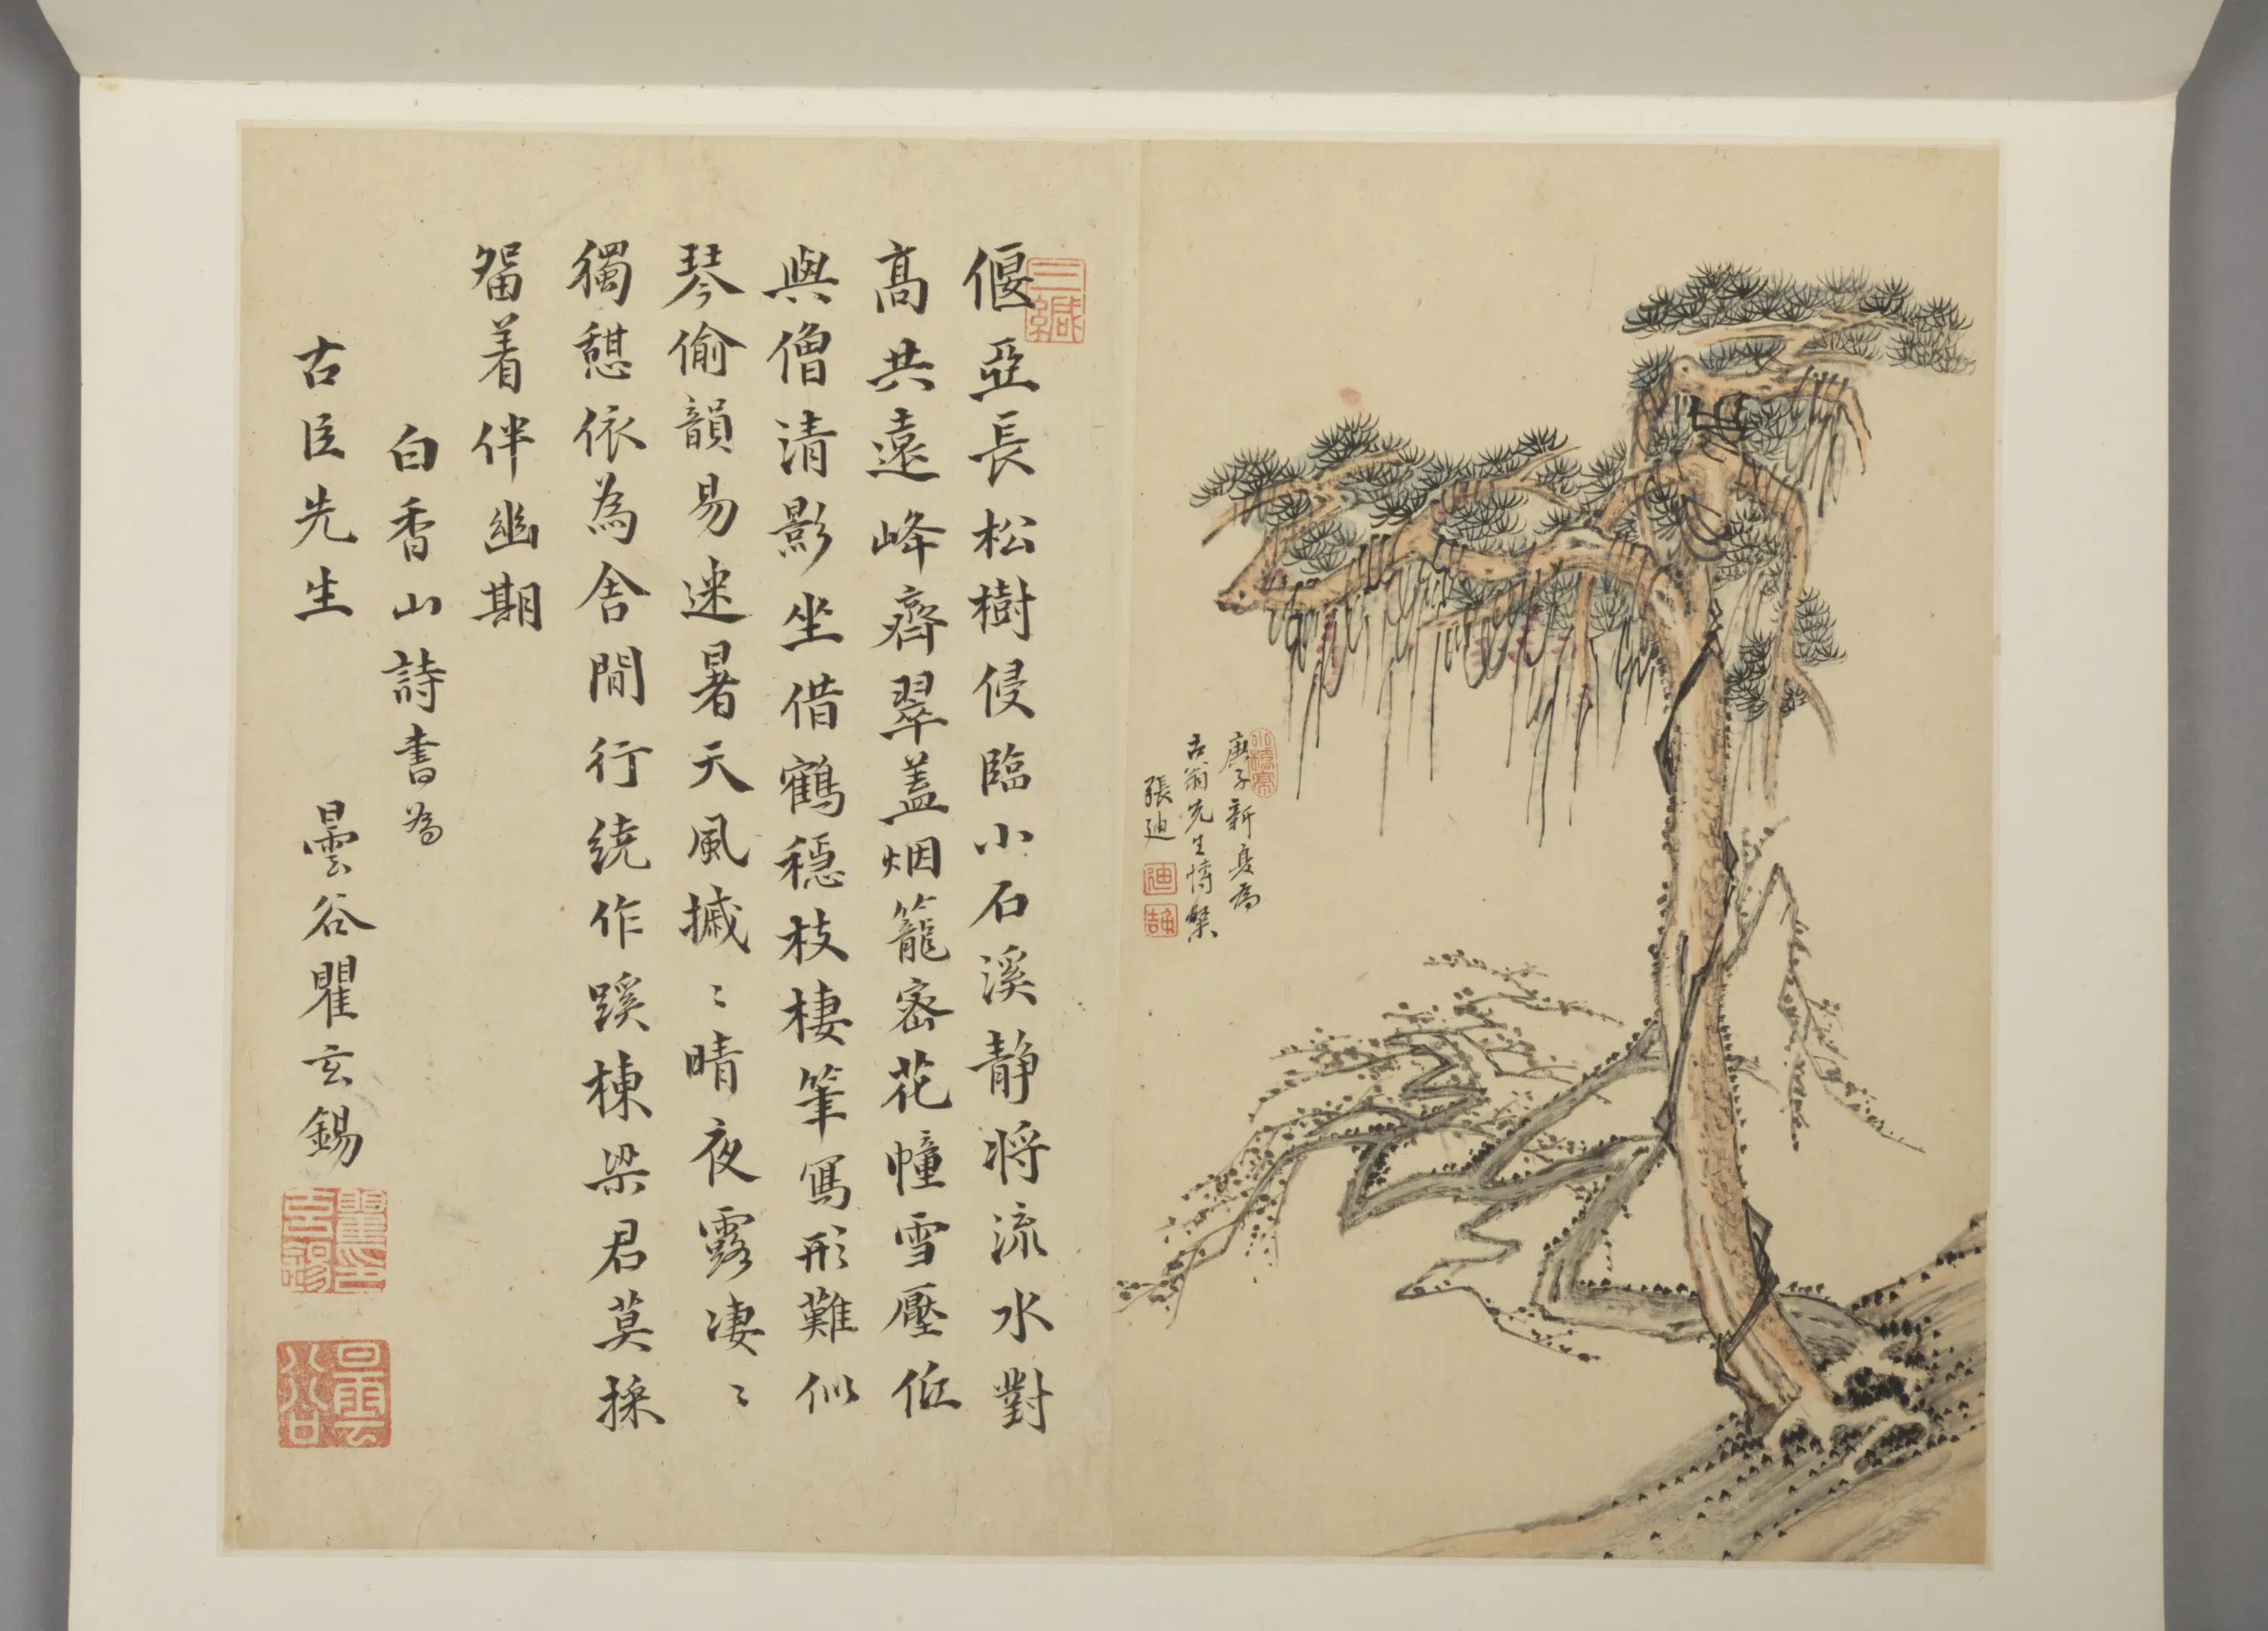 庚子新夏為
古翁先生愽粲
張迪
三緘
偃亞長松樹侵臨小石溪靜將流水對
高共遠峰齊翠蓋烟籠密花幢雪壓低
與僧清影坐借鶴穩枝棲筆寫形難似
琴偷韻易迷暑天風摵〻晴夜露凄〻
獨憩依為舍閒行繞作蹊棟梁君莫採
留着伴幽期
白香山詩書為
古臣先生 曇谷瞿玄錫
瞿印玄錫
曇谷